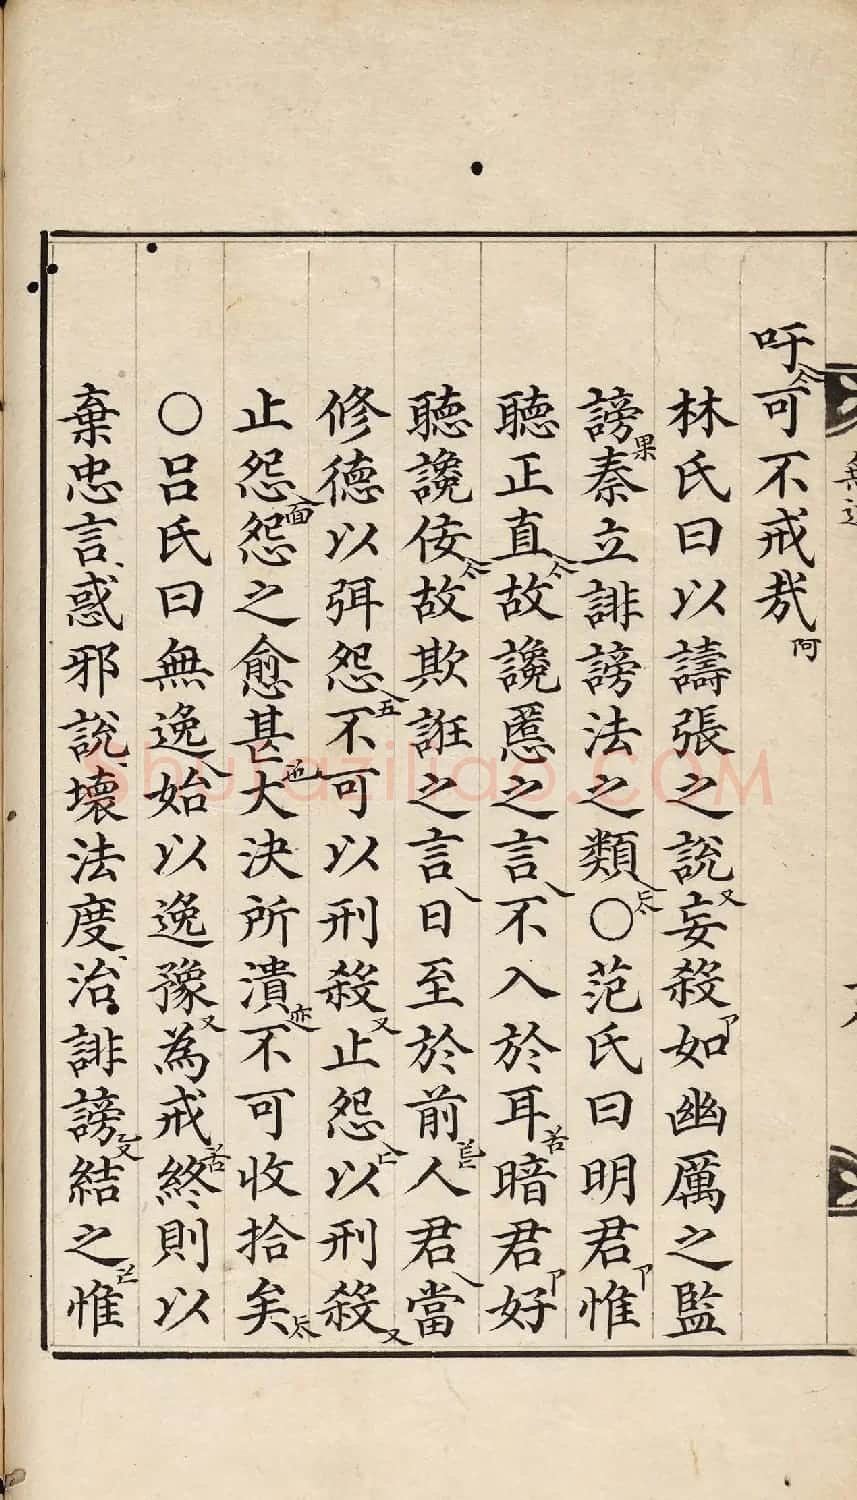 吁可不戒哉
林氏曰以譸張之說妄殺如幽厲之監
謗秦立誹謗法之類○范氏曰明君惟
聴正直故讒慝之言不入於耳暗君好
聴讒佞故欺誑之言日至於前人君當
修德以弭怨不可以刑殺止怨以刑殺
止怨怨之愈甚大決所潰不可收拾矣
○呂氏曰無逸始以逸豫為戒終則以
棄忠言惑邪說壞法度治誹謗結之惟
shufaziliao.COM